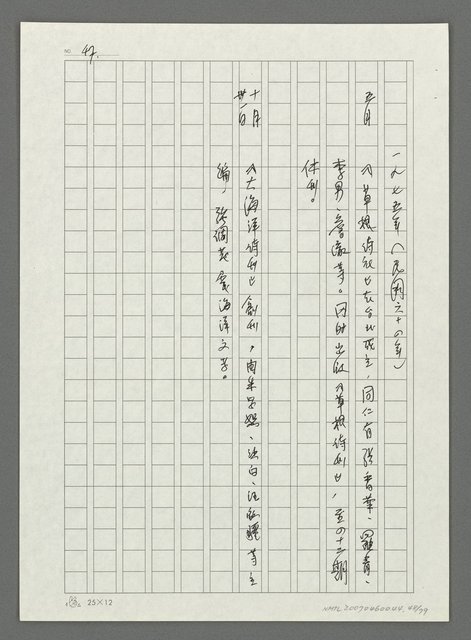 NO. 47.
一九七五年(民國六十四年)
五月
《草根詩社》在台北成立，同仁有張香華、羅青、
李男、詹澈等。同時出版《草根詩刊》，至四十二期
休刊。
十月
卅一日
《大海洋詩刊》創刊，由朱學恕、沙白、汪啟疆等主
編，強調發展海洋文學。
25×12
NMTL20070460044 48/79